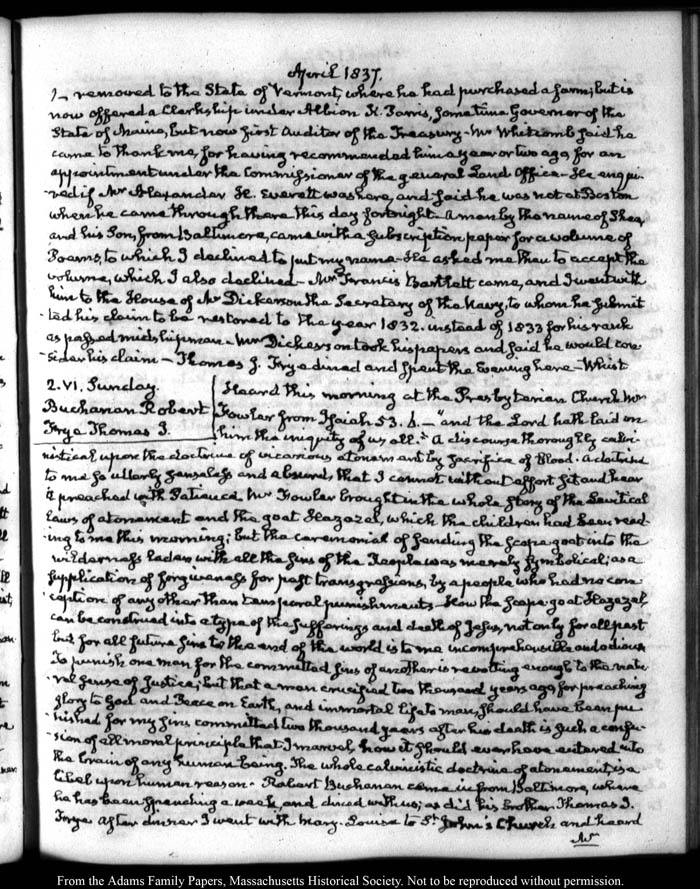 April 1837.
I removed to the State of Vermont, where he had purchased a farm; but is
now offered a Clerkship under Albion K. Parris, sometime Governor of the
State of Maine, but now first Auditor of the Treasury. Mr Whitcomb said he
came to thank me, for having recommended him a year or two ago, for an
appointment under the Commissioner of the general Land Office. He enqui-
red if Mr Alexander H. Everett was here, and said he was not at Boston
when he came through there this day fortnight. A man by the name of
and his Son, from Baltimore, came with a subscription paper for a volume of
Poems, to which I declined to put my name. He asked me then to accept the
volume, which I also declined. Mr Francis Bartlett came, and I went with
him to the House of Mr Dickerson the Secretary of the Navy, to whom he submit-
ted his claim to be restored to the year 1832. instead of 1833 for his rank
as passed midshipman. Mr Dickerson took his papers and said he would con-
sider his claim — Thomas J. Frye dined and spent the Evening here — Whist
2. VI. Sunday.
Buchanan Robert
Frye Thomas J.
Heard this morning at the Presbyterian Church Mr
Fowler from Isaiah 53. 6. — "and the Lord hath laid on
him the iniquity of us all." A discourse thoroughly calvi-
nistical upon the doctrine of vicarious atonement by sacrifice of Blood. A doctrine
to me so utterly senseless and absurd, that I cannot without effort sit and hear
it preached with Patience. Mr Fowler brought in the whole story of the Levitical
laws of atonement and the goat Hazazel, which the children had been read-
ing to me this morning; but the ceremonial of sending the scape goat into the
wilderness laden with all the sins of the People was merely symbolical; as a
supplication of forgiveness for past transgressions, by a people who had no con-
ception of any other than temporal punishments. How the scape-goat Hazazel,
can be construed into a type of the sufferings and death of Jesus, not only for all past
but for all future sins to the end of the world is to me incomprehensible and odious
To punish one man for the committed sins of another is revolting enough to the natu-
ral sense of Justice; but that a man crucified two thousand years ago, for preaching
glory to God and Peace on Earth, and immortal life to man, should have been pu-
nished for my sins committed two thousand years after his death is such a confu-
sion of all moral principle that I marvel, how it should ever have entered into
the brain of any human being. The whole calvinistic doctrine of atonement, is a
libel upon human reason. Robert Buchanan came in from Baltimore, where
he has been spending a week, and dined with us; as did his brother Thomas J.
Frye after dinner I went with Mary-Louisa to St. John's Church and heard
Mr
From the Adams Family Papers, Massachusetts Historical Society. Not to be reproduced without permission.